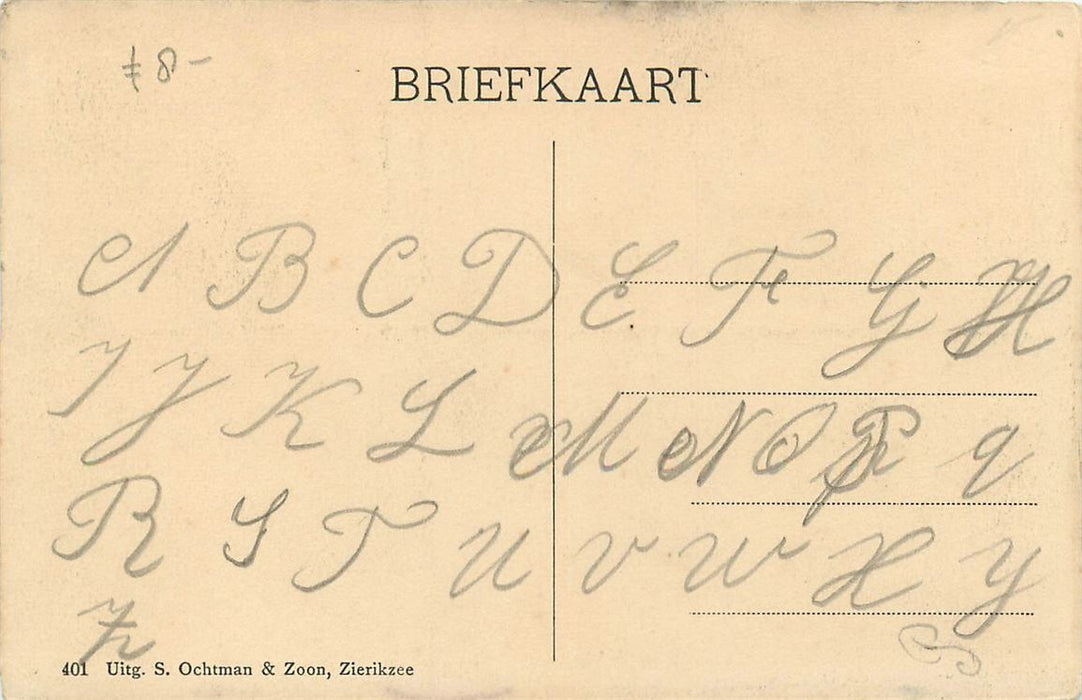 ≠ 8-
BRIEFKAART
A B C D E F G H
I J K L M N O P q
R S T U V W X Y
Z
401 Uitg. S. Ochtman & Zoon, Zierikzee